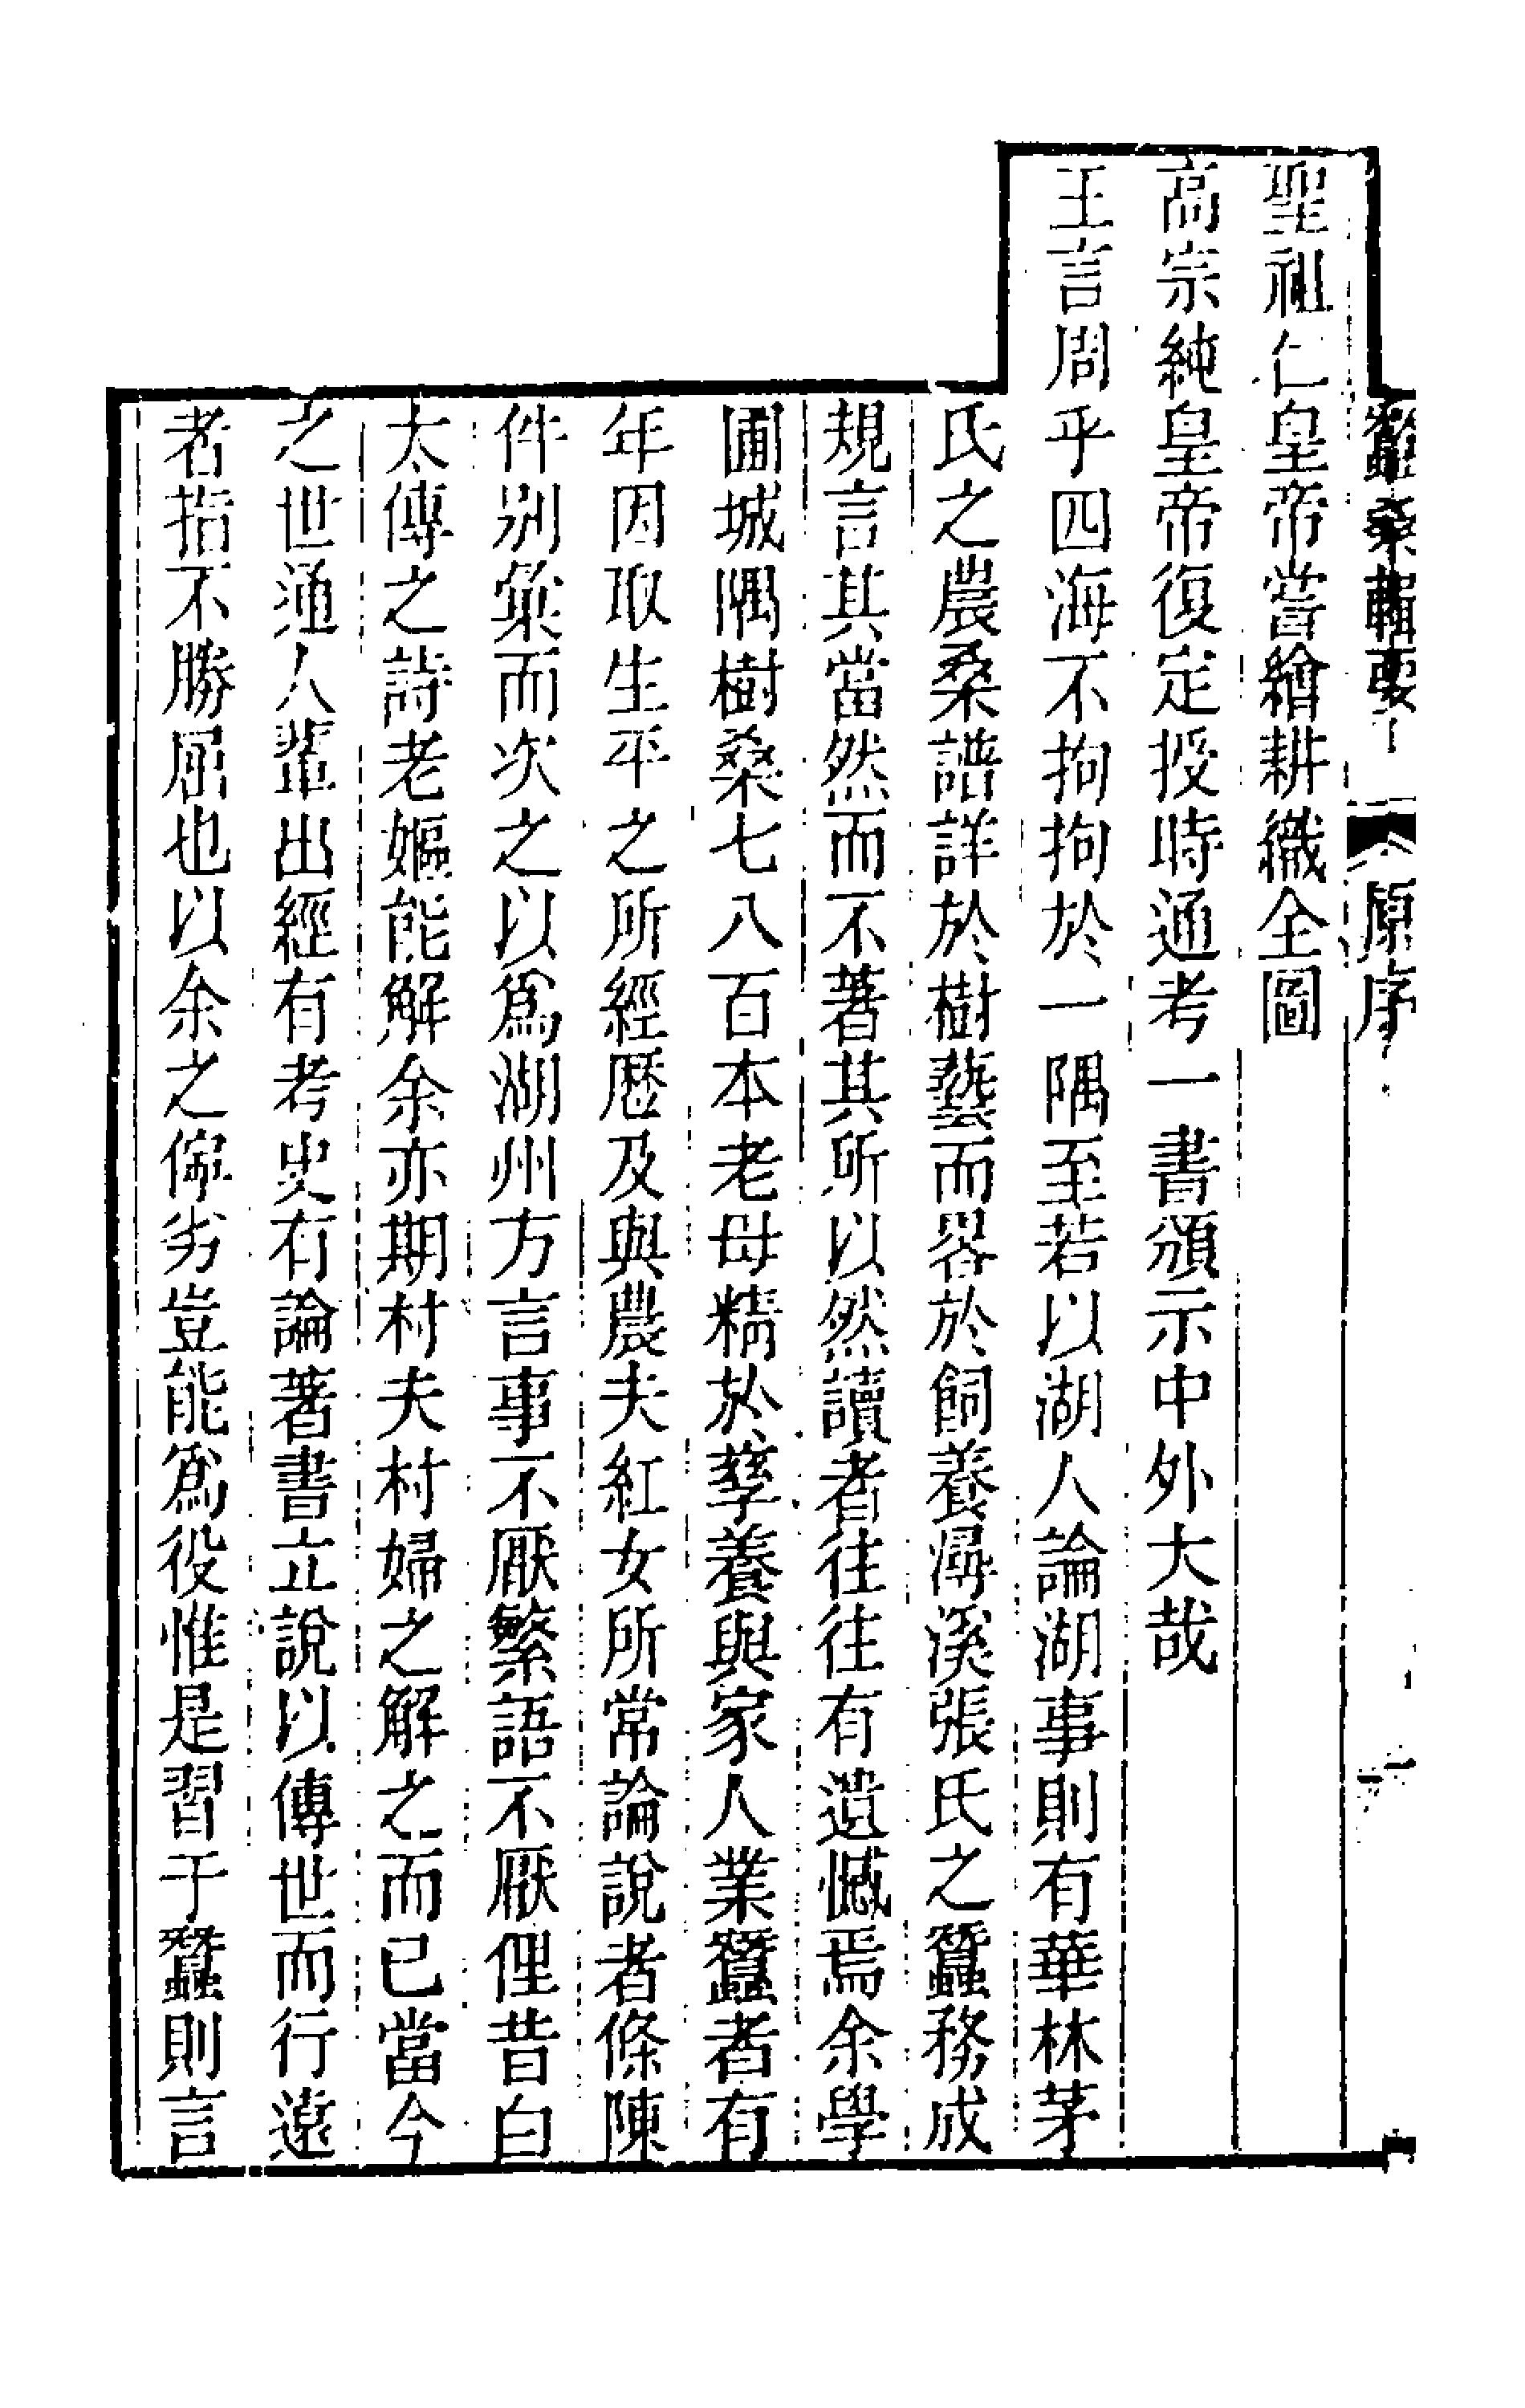 蠶桑輯要 原序
聖祖仁皇帝嘗繪耕織全圖
高宗純皇帝復定授時通考一書頒示中外大哉
王言周乎四海不拘拘於一隅至若以湖人論湖事則有華林茅
氏之農桑譜詳於樹藝而畧於飼養潯溪張氏之蠶務成
規言其當然而不著其所以然讀者往往有遺憾焉余學
圃城隅樹桑七八百本老母精於孳養與家人業蠶者有
年因取生平之所經歷及與農夫紅女所常論說者條陳
件别彙而次之以爲湖州方言事不厭繁語不厭俚昔白
太傅之詩老嫗能解余亦期村夫村婦之解之而已當今
之世通人輩出經有考史有論著書立說以傳世而行遠
者指不勝屈也以余之儜劣豈能爲役惟是習于蠶則言